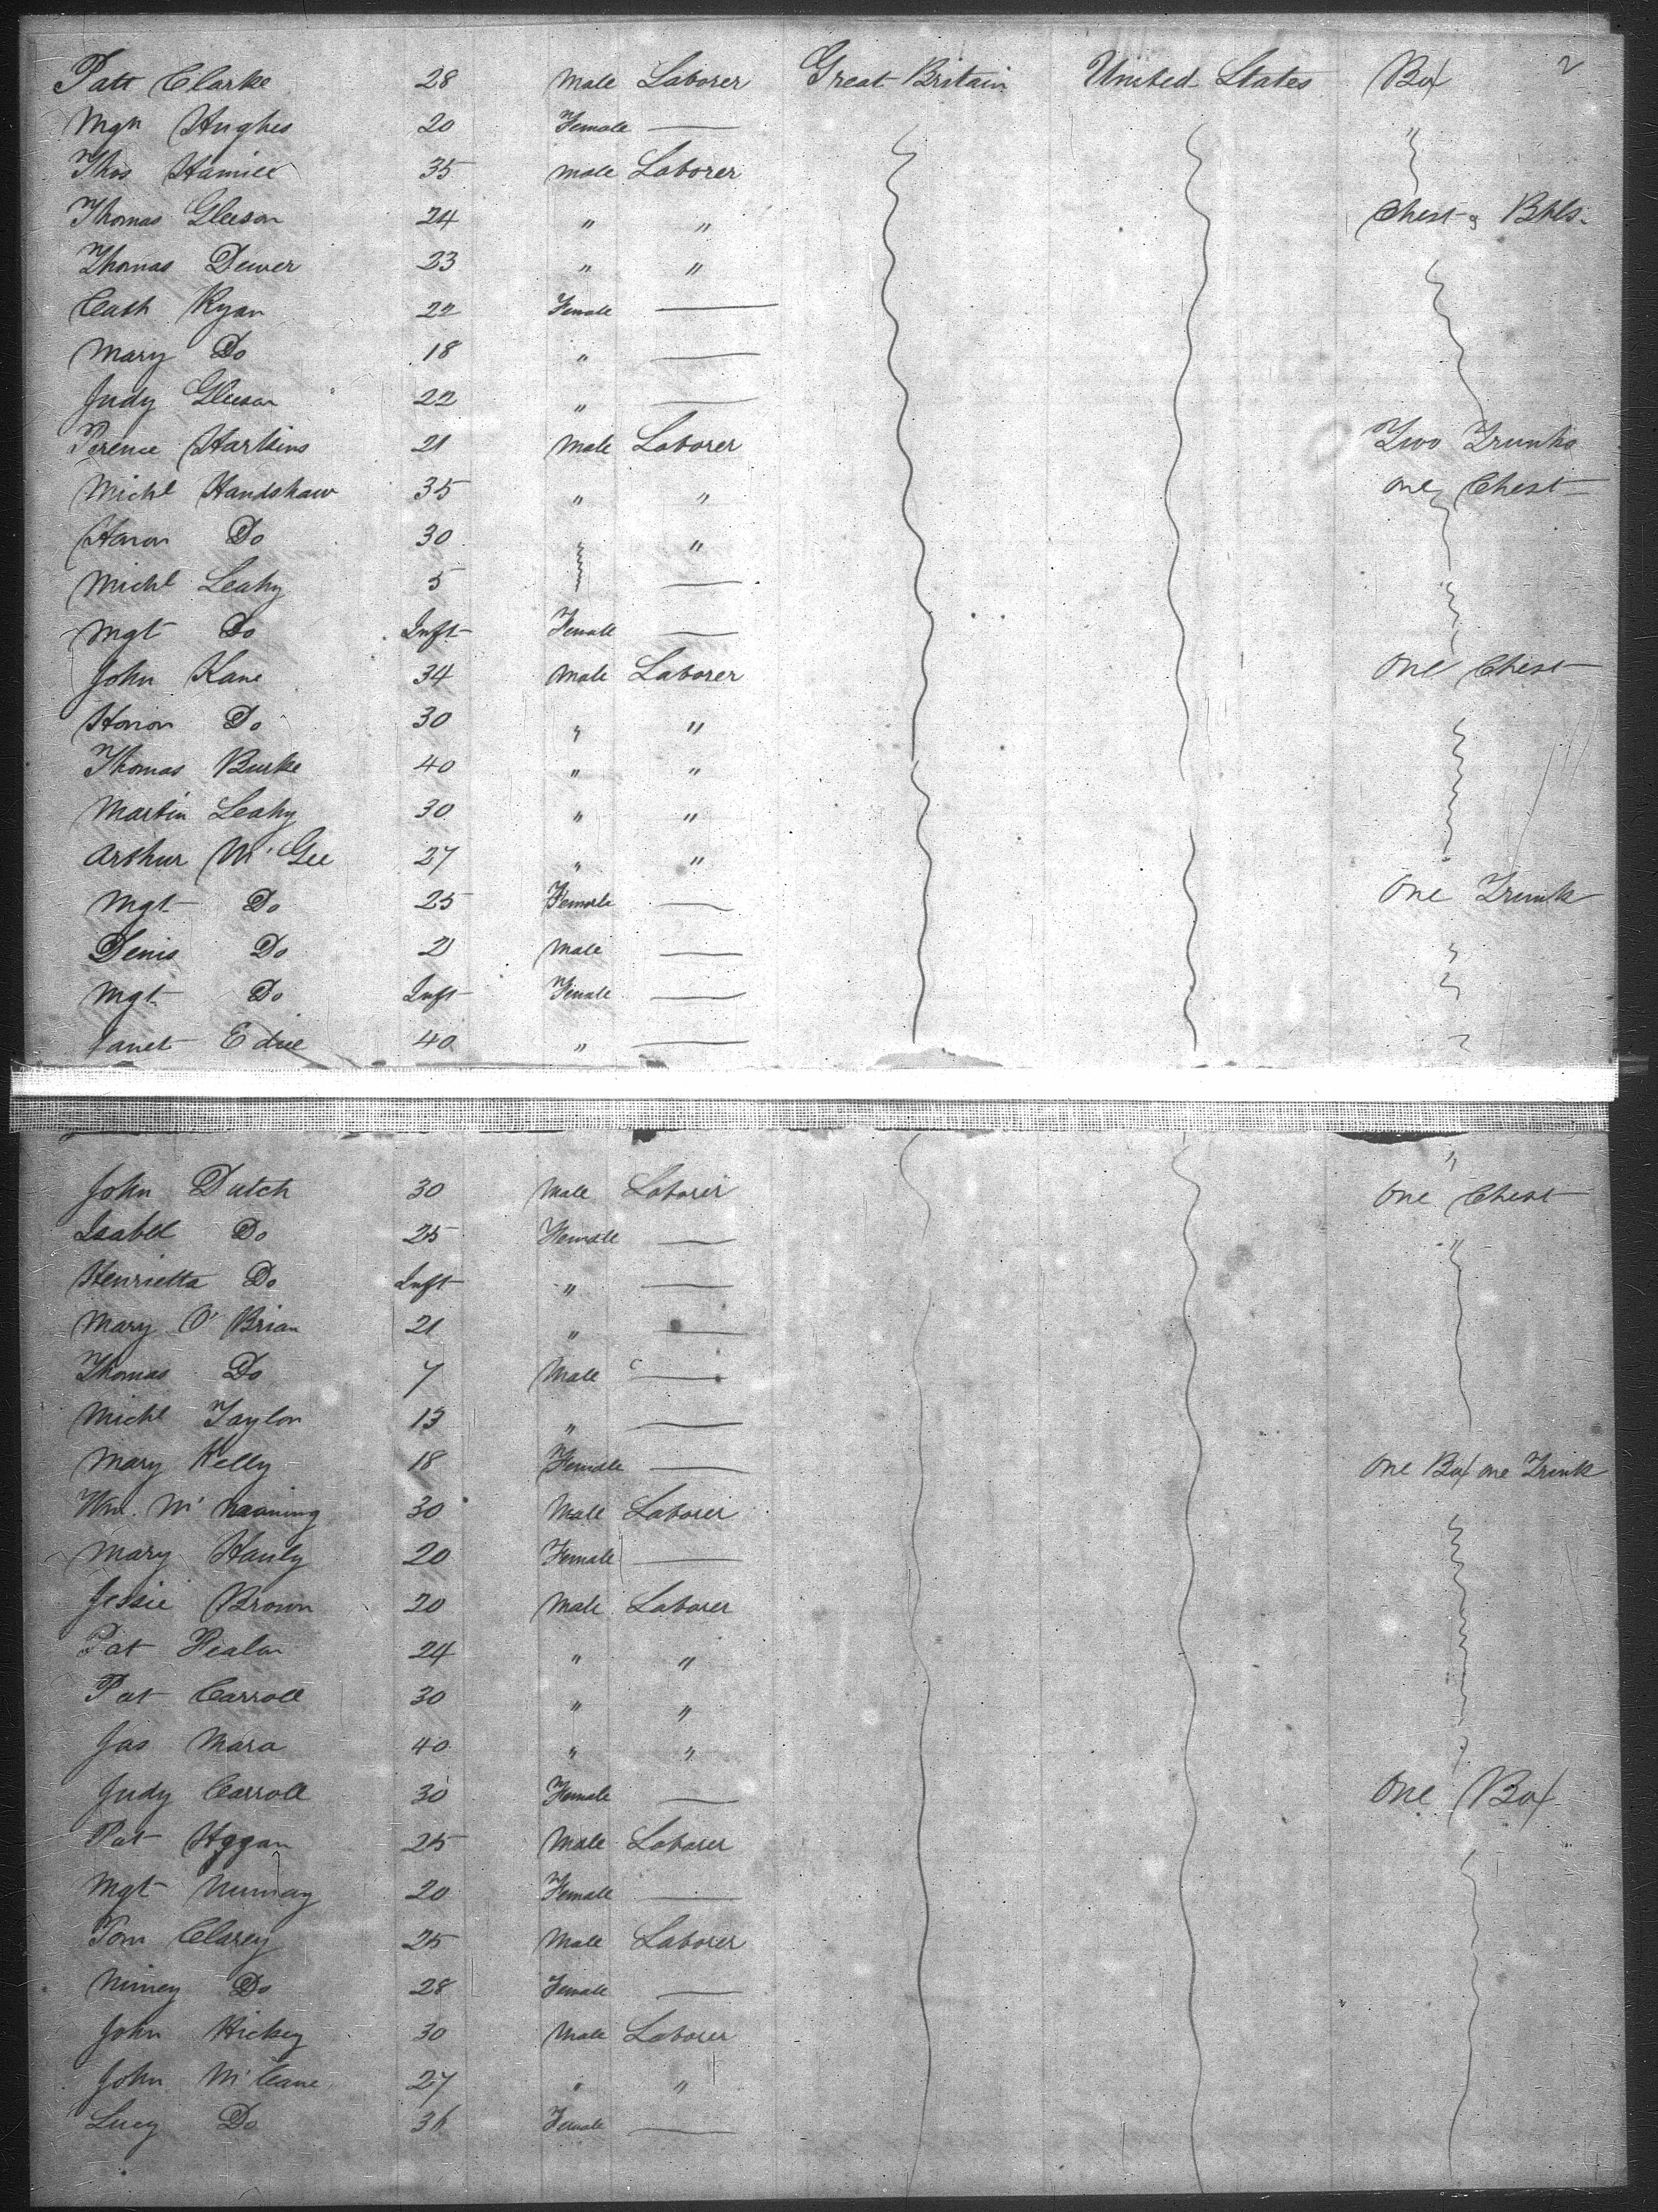 2
Patt Clarke 28 Male Laborer Great Britain United States Box
Mgn Hughes 20 Female —— "
Thos Hamill 35 Male Laborer
Thomas Gleeson 24 " " Chest & Bbls.
Thomas Dewer 23 " "
Cath Ryan 22 Female ——
Mary Do 18 " ——
Judy Gleeson 22 " ——
Terence Harkins 21 Male Laborer Two Trunks
Michl Handshaw 35 " " One Chest
Honor Do 30 "
Michl Leahy 5 ——
Mgt Do Inft Female ——
John Kane 34 Male Laborer One Chest
Honor Do 30 " "
Thomas Burke 40 " "
Martin Leahy 30 " "
Arthur M' Gee 27 " "
Mgt Do 25 Female —— One Trunk
Denis Do 2 Male ——
Mgt Do Inft Female ——
Janet Edie 40 " ——
"
John Dutch 30 Male Laborer One Chest
Isabel Do 25 Female —— "
Henrietta Do Inft " ——
Mary O' Brian 21 " ——
Thomas Do 7 Male ——
Michl Taylor 13 " ——
Mary Kelly 18 Female —— One Box one Trunk
Wm. M' 30 Male Laborer
Mary Hanly 20 Female ——
Jessie Brown 20 Male Laborer
Pat 24 " "
Pat Carroll 30 " "
Jas Mara 40 " "
Judy Carroll 30 Female —— One Box
Pat Hggan 25 Male Laborer
Mgt 20 Female ——
Tom Clarey 25 Male Laborer
Do 28 Female ——
John Hickey 30 Male Laborer
John M'Cane 27 " "
Lucy Do 36 Female ——